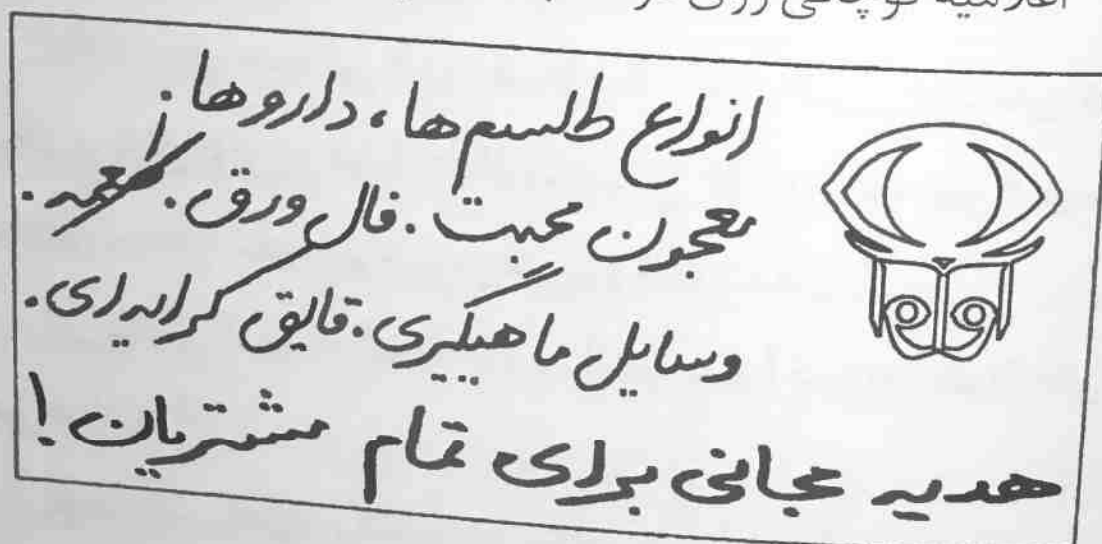 انواع طلسم‌ها، داروها.
معجون محبت. فال ورق. طعمه.
وسایل ماهیگیری. قایق کرایه‌ای.
هدیه مجانی برای تمام مشتریان!